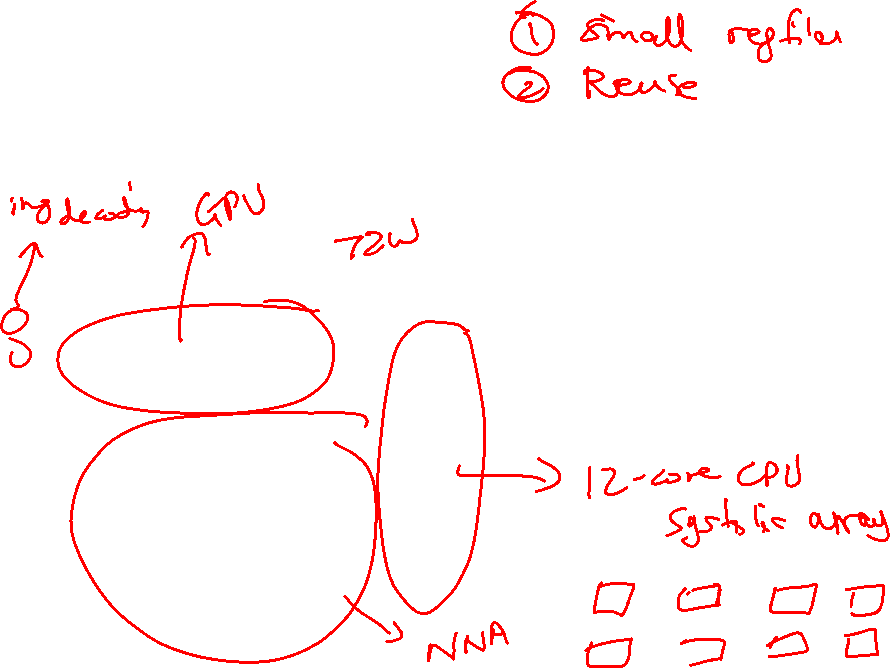 ① small regfiles
② Reuse
img decodin GPU
72W
12-core CPU
systolic array
NNA